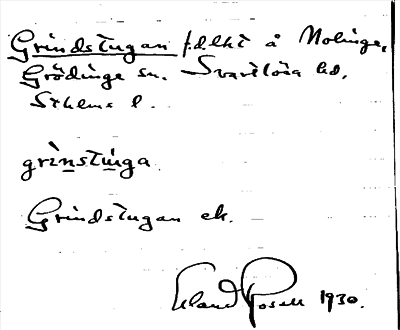 Grindstugan f.d. lht å Malinge,
Grödinge sn. Svartlösa hd.
Sthlms l.
grìnstùga
Grindstugan ek.
Erland Rosell 1930.